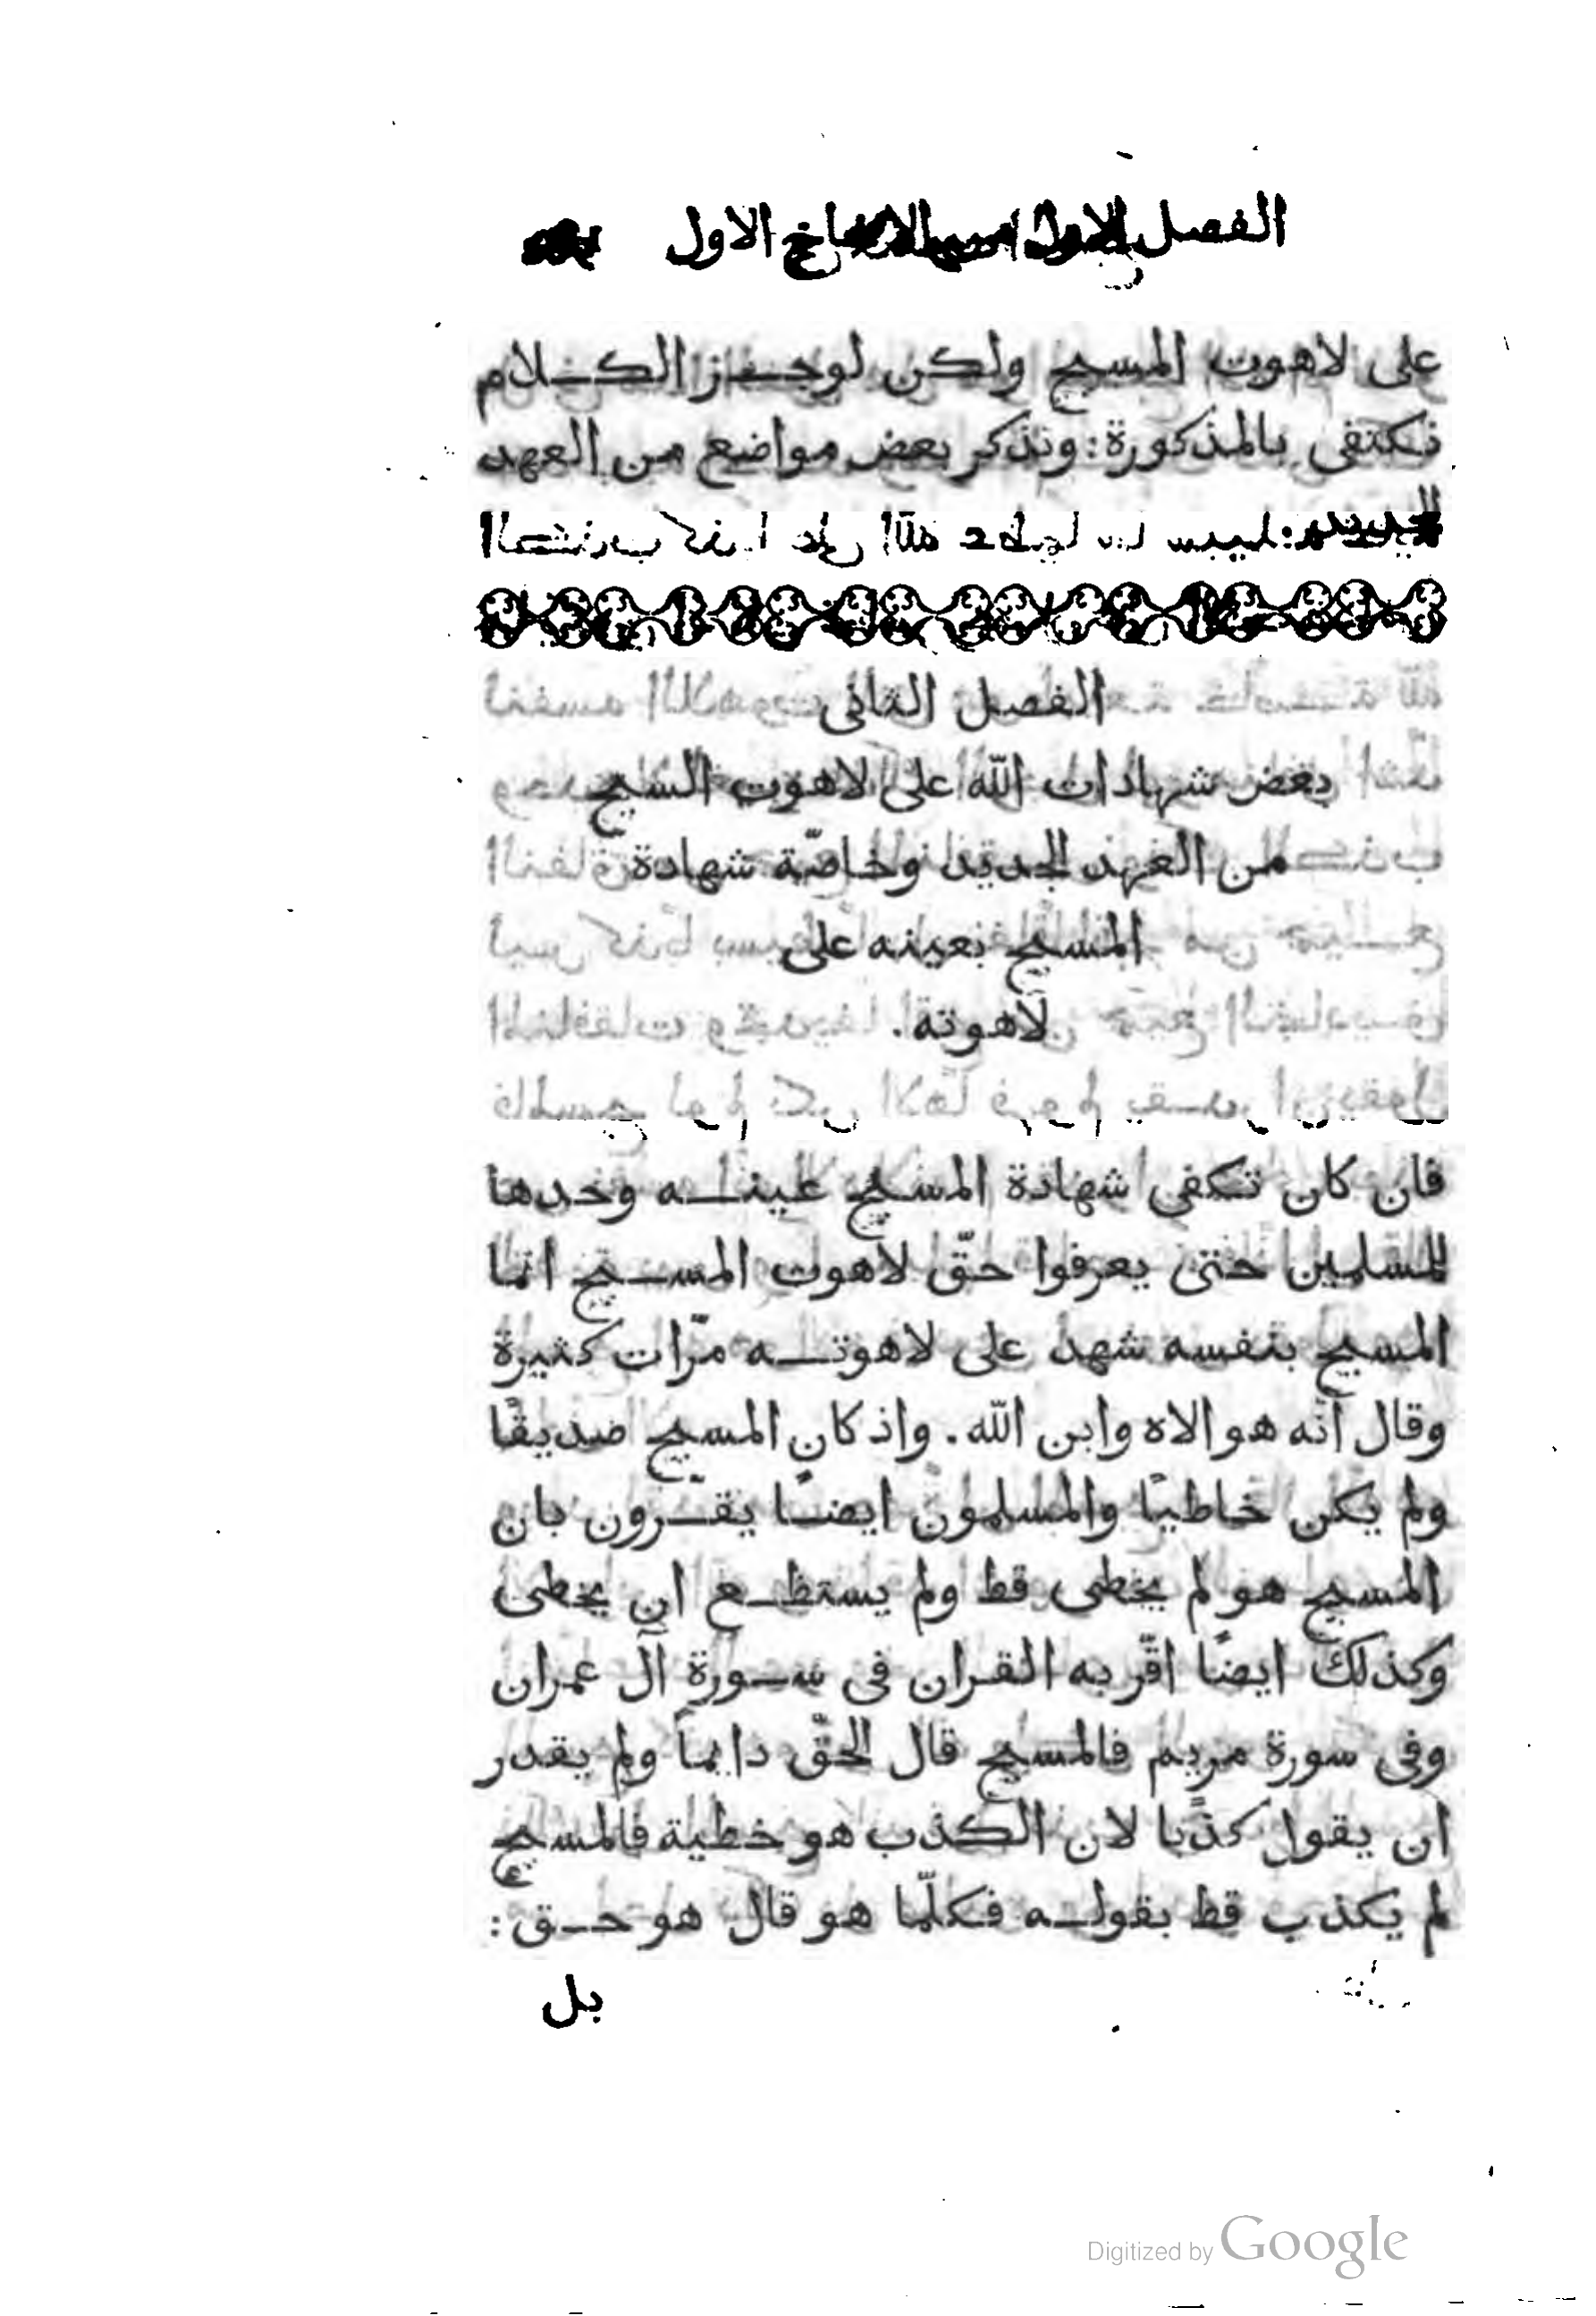 الفصل الاول من الاصحاخ الاول
على لاهوت المسيح ولكن لوجـز الكـلام
نكتفى بالمذكورة: ونذكر بعض مواضع من العهد
الجديد:
الفصل الثانى
بعض شهادات اللّه على لاهوت السيح
من العهد الجديد وخاصّة شهادة
المسيح بعينه على
لاهوته.
فان كان تكفى شهادة المسيح عينـه وحدها
للمسلمين حتى يعرفوا حقّ لاهوت المسـيح انما
المسيح بنفسه شهد على لاهوتـه مرّات كثيرة
وقال انّه هو الاه وابن اللّه. واذ كان المسيح صديقًا
ولم يكن خاطيًا والمسلمون ايضـًا يقـّرون بان
المسيح هو لم يخطى قط ولم يستطـع ان يخطى
وكذلك ايضًا اقّر به القران فى سـورة آل عمران
وفى سورة مريم فالمسيح قال الحقّ دايماً ولم يقدر
ان يقول كذبًا لان الكذب هو خطية فالمسيح
لم يكذب قط بقولـه فكلّما هو قال هو حـق:
بل
Digitized by Google